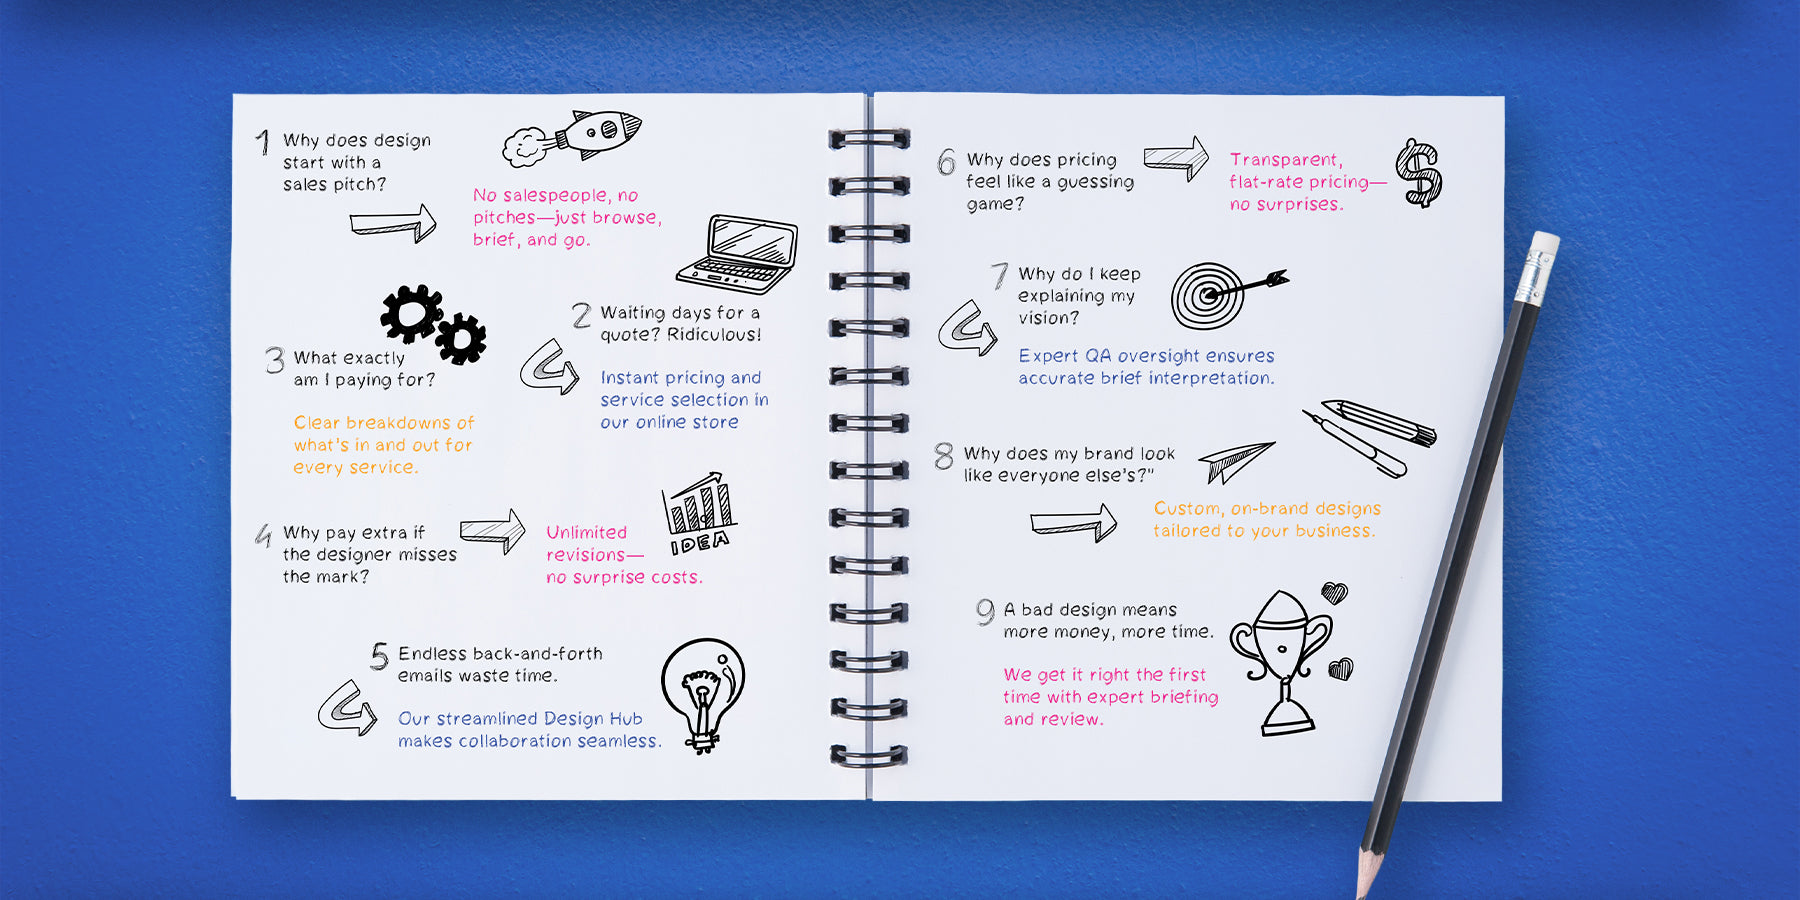 1 Why does design
start with a
sales pitch?
No salespeople, no
pitches—just browse,
brief, and go.
2 Waiting days for a
quote? Ridiculous!
Instant pricing and
service selection in
our online store
3 What exactly
am I paying for?
Clear breakdowns of
what's in and out for
every service.
4 Why pay extra if
the designer misses
the mark?
Unlimited
revisions—
no surprise costs.
IDEA
5 Endless back-and-forth
emails waste time.
Our streamlined Design Hub
makes collaboration seamless.
6 Why does pricing
feel like a guessing
game?
Transparent,
flat-rate pricing—
no surprises.
$
7 Why do I keep
explaining my
vision?
Expert QA oversight ensures
accurate brief interpretation.
8 Why does my brand look
like everyone else's?"
Custom, on-brand designs
tailored to your business.
9 A bad design means
more money, more time.
We get it right the first
time with expert briefing
and review.